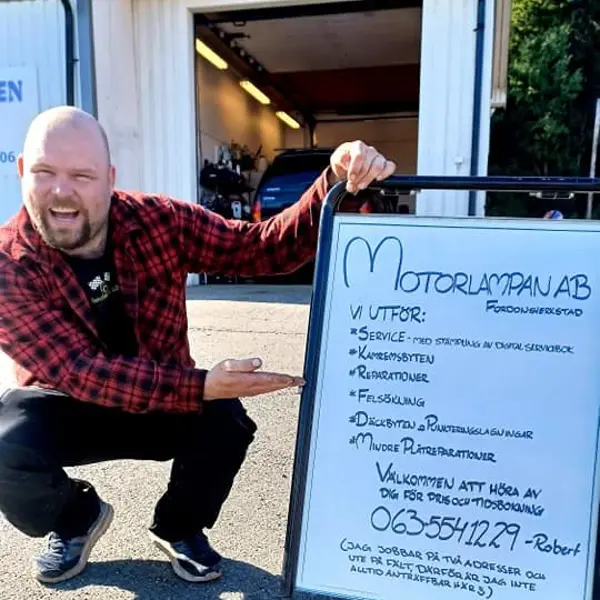 EN
06
MOTORLAMPAN AB
FORDONSVERKSTAD
VI UTFÖR:
*SERVICE - MED STÄMPLING AV DIGITAL SERVICEBOK
*KAMREMSBYTEN
*REPARATIONER
*FELSÖKNING
*DÄCKBYTEN & PUNKTERINGSLAGNINGAR
*MINDRE PLÅTREPARATIONER
VÄLKOMMEN ATT HÖRA AV
DIG FÖR PRIS OCH TIDSBOKNING
063-5541229 - Robert
(JAG JOBBAR PÅ TVÅ ADRESSER OCH
UTE PÅ FÄLT, DÄRFÖR ÄR JAG INTE
ALLTID ANTRÄFFBAR HÄR :)